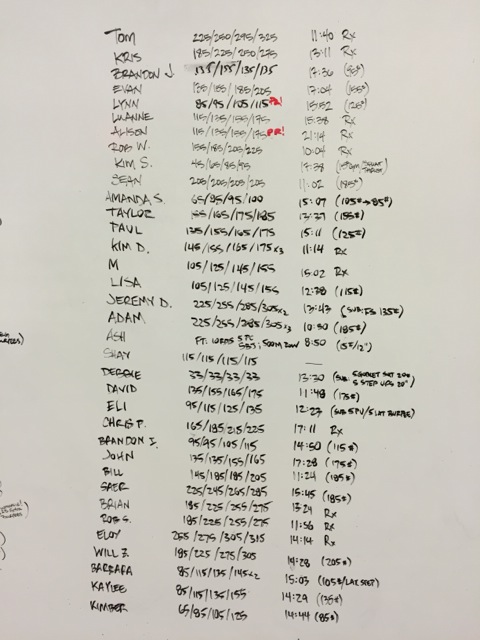 TOM 225/250/295/325 11:40 RX
KRIS 185/225/250/275 13:11 RX
BRANDON J. 135/155/135/135 13:36 (95#)
EVAN 135/155/185/205 13:04 (155#)
LYNN 85/95/105/115 PR! 15:52 (125#)
LUANNE 115/135/155/175 15:38 RX
ALISON 115/135/155/175 PR! 21:14 RX
ROB W. 155/185/205/225 10:04 RX
KIM S. 45/65/85/95 17:38
SEAN 205/205/205/205 11:02 (185#)
AMANDA S. 65/85/95/100 15:07 (105#→85#)
TAYLOR 155/165/175/185 13:37 (155#)
PAUL 135/155/165/175 15:11 (125#)
KIM D. 145/155/165/175x3 11:14 RX
M 105/125/145/155 15:02 RX
LISA 105/125/145/155 12:38 (115#)
JEREMY D. 225/255/285/305x2 13:43 (SUB: FS 135#)
ADAM 225/255/285/305x3 10:50 (185#)
ASH FT. 500M ROW 8:50 (15#/12")
SHAY 115/115/115/115 —
DEBBIE 33/33/33/33 13:30 (SUB: 5 GOBLET SQT 20# 5 STEP UPS 20")
DAVID 135/155/165/175 11:48 (175#)
ELI 95/115/125/135 12:27 (SUB 5 PU/5 LAT BURPEE)
CHRIS P. 165/185/215/225 17:11 RX
BRANDON I. 95/95/105/115 14:50 (115#)
JOHN 135/135/155/165 17:28 (175#)
BILL 145/185/185/205 11:24 (185#)
SAER 225/245/265/285 15:45 (185#)
BRIAN 185/225/255/275 13:24 RX
ROB S. 185/225/255/275 11:56 RX
ELOY 255/275/305/315 14:14 RX
WILL Z. 185/225/275/305 14:28 (205#)
BARBARA 85/115/135/145x2 15:03 (105#/LAX STEP)
KAYLEE 85/115/135/155 14:29 (135#)
KIMBER 65/85/105/125 14:44 (85#)